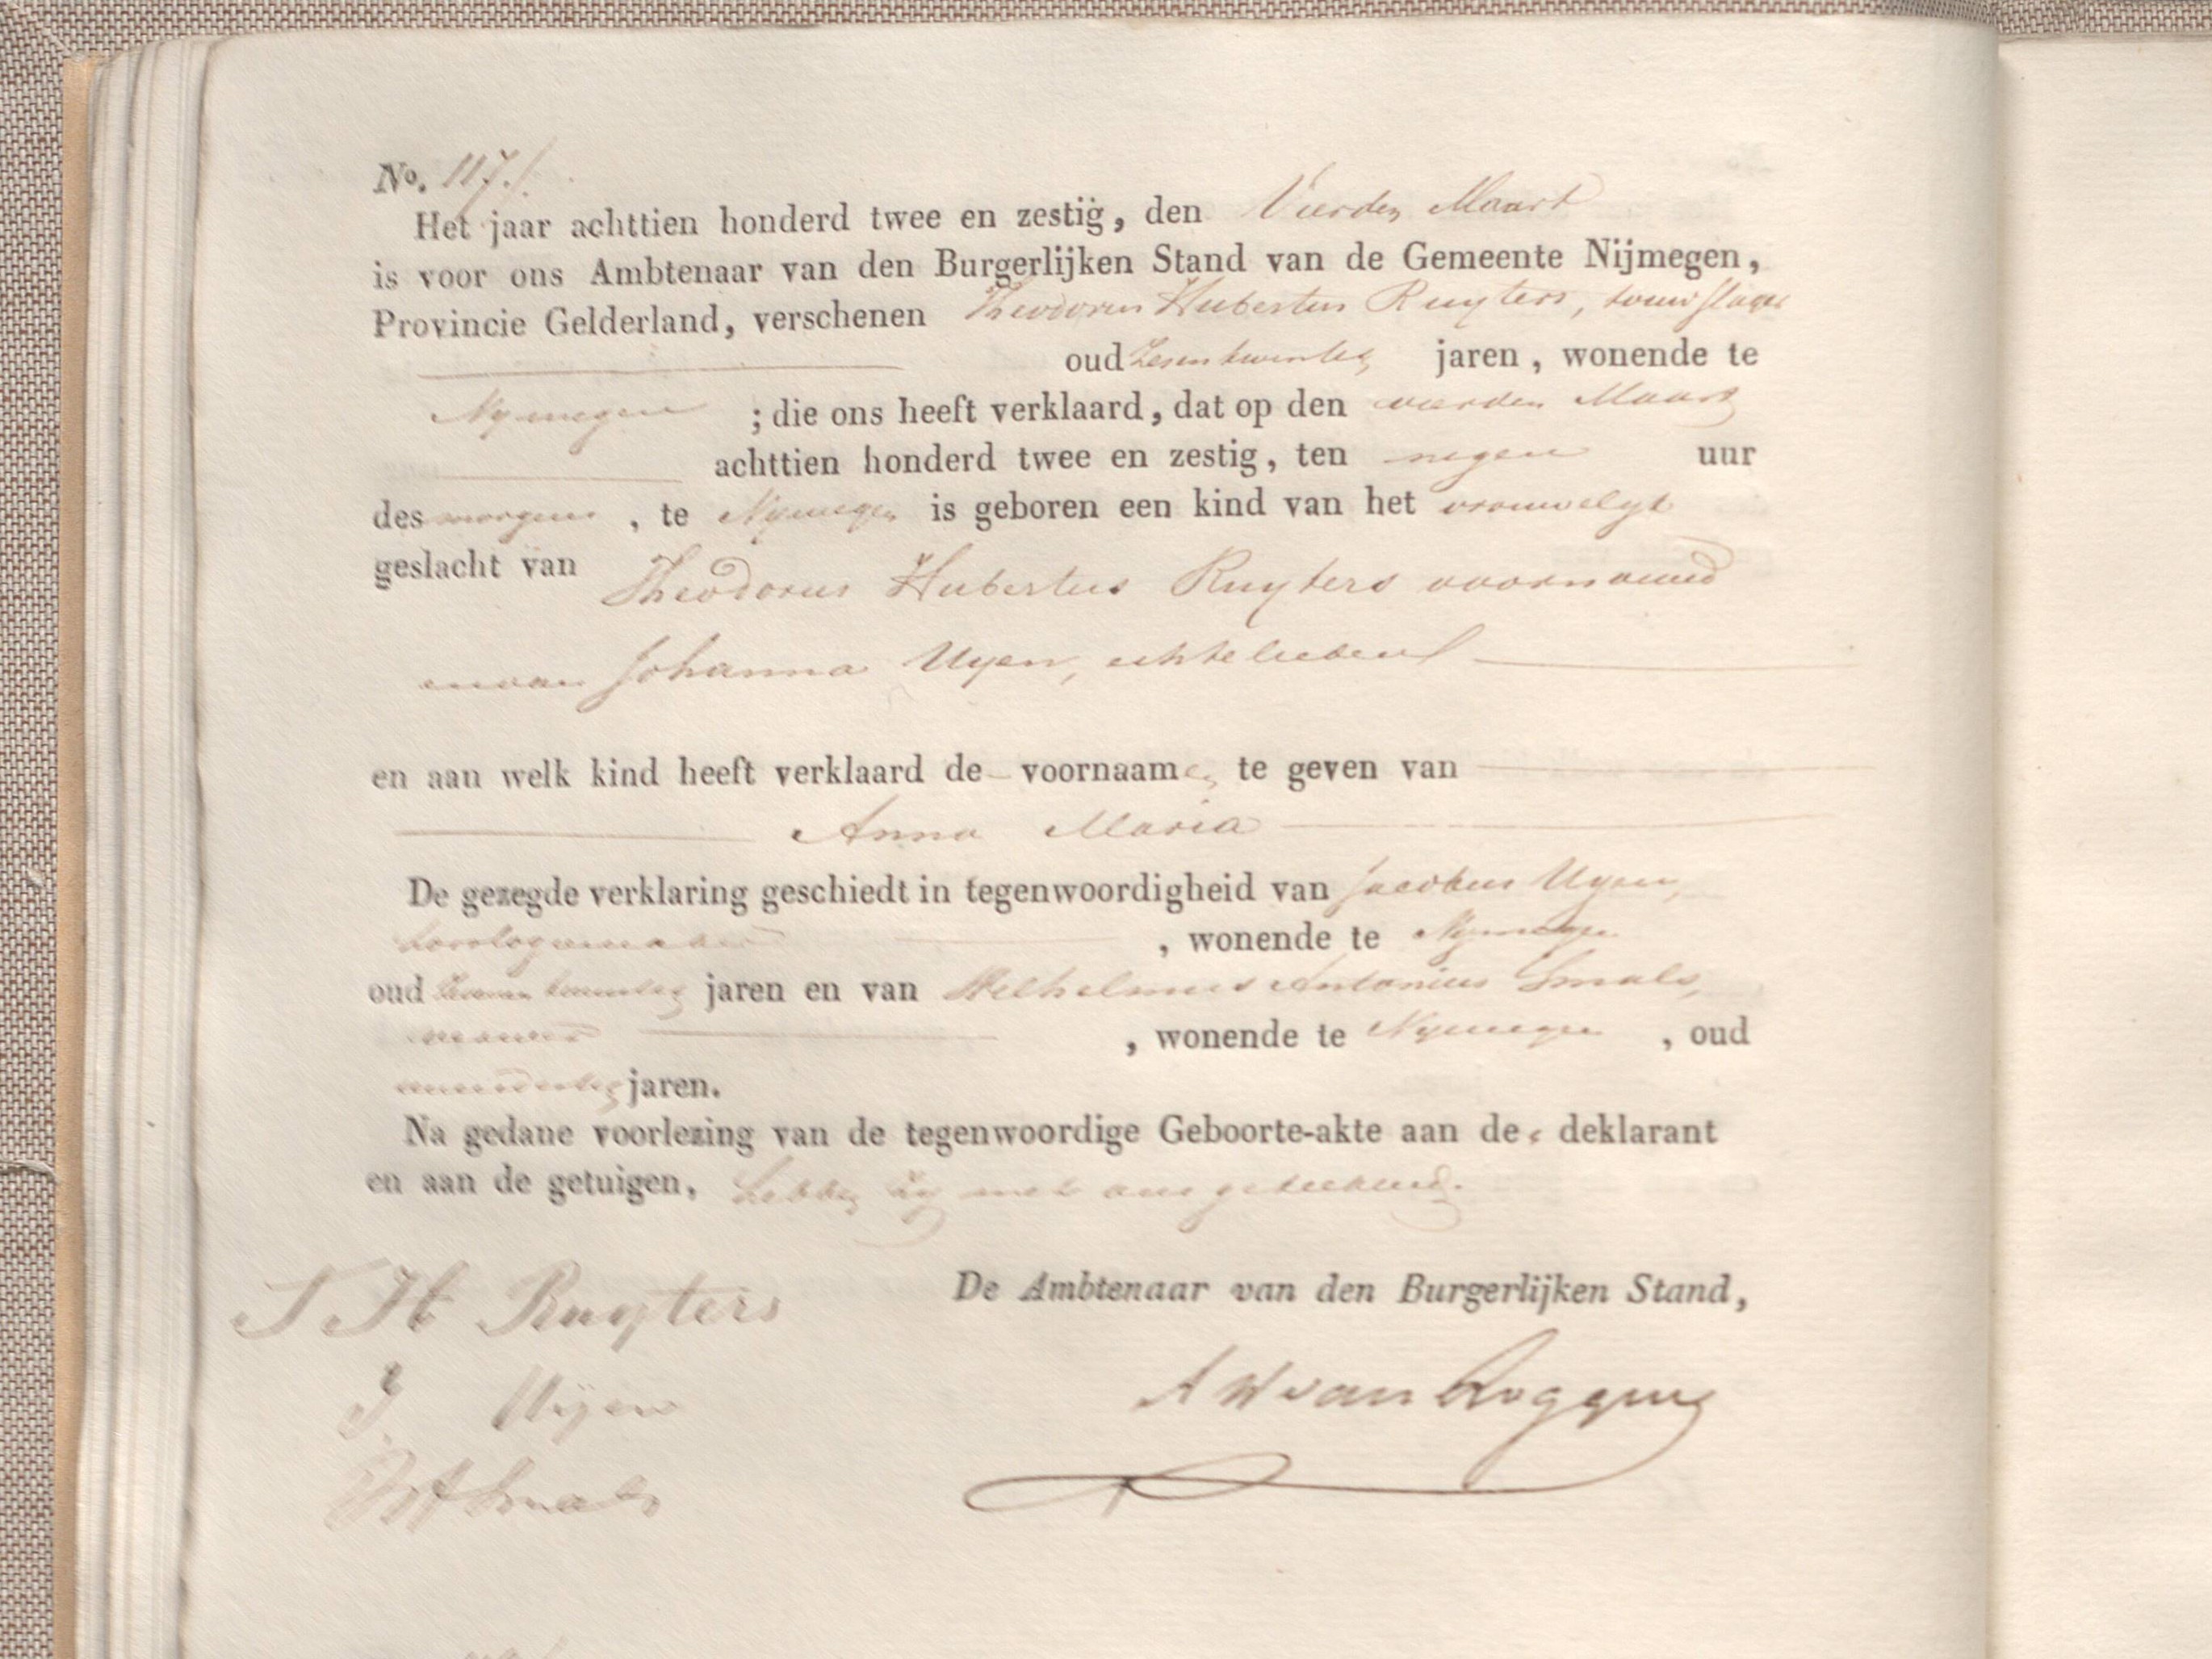 No. 117.
Het jaar achttien honderd twee en zestig, den Vierden Maart
is voor ons Ambtenaar van den Burgerlijken Stand van de Gemeente Nijmegen,
Provincie Gelderland, verschenen Theodorus Hubertus Ruyters, touwslager
oud Zesentwintig jaren, wonende te
Nymegen ; die ons heeft verklaard, dat op den vierden Maart
achttien honderd twee en zestig, ten negen uur
des morgens , te Nymegen is geboren een kind van het vrouwelyk
geslacht van Theodorus Hubertus Ruyters voornoemd
en van Johanna Uyen, echtelieden
en aan welk kind heeft verklaard de voornaamen te geven van
Anna Maria
De gezegde verklaring geschiedt in tegenwoordigheid van Jacobus Uyen,
horologiemaker , wonende te Nymegen
oud jaren en van Wilhelmus Antonius Smals,
, wonende te Nymegen , oud
jaren.
Na gedane voorlezing van de tegenwoordige Geboorte-akte aan de deklarant
en aan de getuigen, hebben zy met ons geteekend.
T H Ruyters
De Ambtenaar van den Burgerlijken Stand,
J Uyen
A W van
Smals